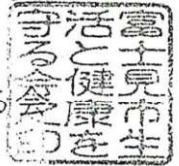 富士見市生
活と健康を
守る会会印